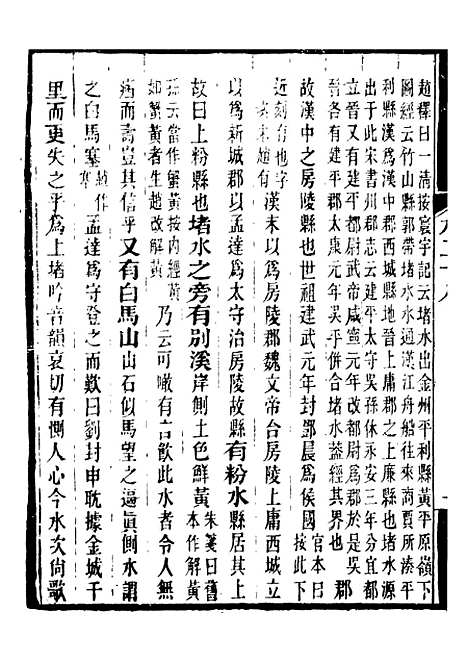 趙釋曰一清按寰宇記云堵水出金州平利縣黃平原嶺下
圖經云竹山縣郭帶堵水水通漢江舟船往來商賈所湊平
利縣漢爲漢中郡西城縣地晉上庸郡之上廉縣也堵水源
出于此宋書州郡志云建平太守吳孫休永安三年分宜都
立晉又有建平都尉武帝咸寧元年改都尉爲郡於是吳
晉各有建平郡太康元年吳平併合堵水葢經其界 郡
故漢中之房陵縣也世祖建武元年封鄧晨爲侯國官本曰按此下
近刻有也字案朱趙有漢末以爲房陵郡魏文帝台房陵上庸西城立
以爲新城郡以孟達爲太守治房陵故縣有粉水縣居其上
故曰上粉縣也堵水之旁有別溪岸側土色鮮黃朱箋曰舊本作解黃
孫云當作蟹黃按內經黃如蟹黃者生趙改解黃乃云可噉有言飮此水者令人無
病而壽豈其信乎又有白馬山山石似馬望之逼眞側水謂
之白馬塞趙作寨孟達爲守登之而歎曰劉封申耽據金城千
里而更失之乎爲上堵吟音韻哀切有惻人心今水次尙歌